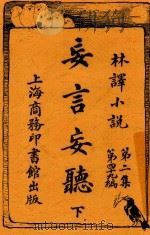 林譯小說
第二集
第 編
妄言妄聽
下
上海商務印書館出版